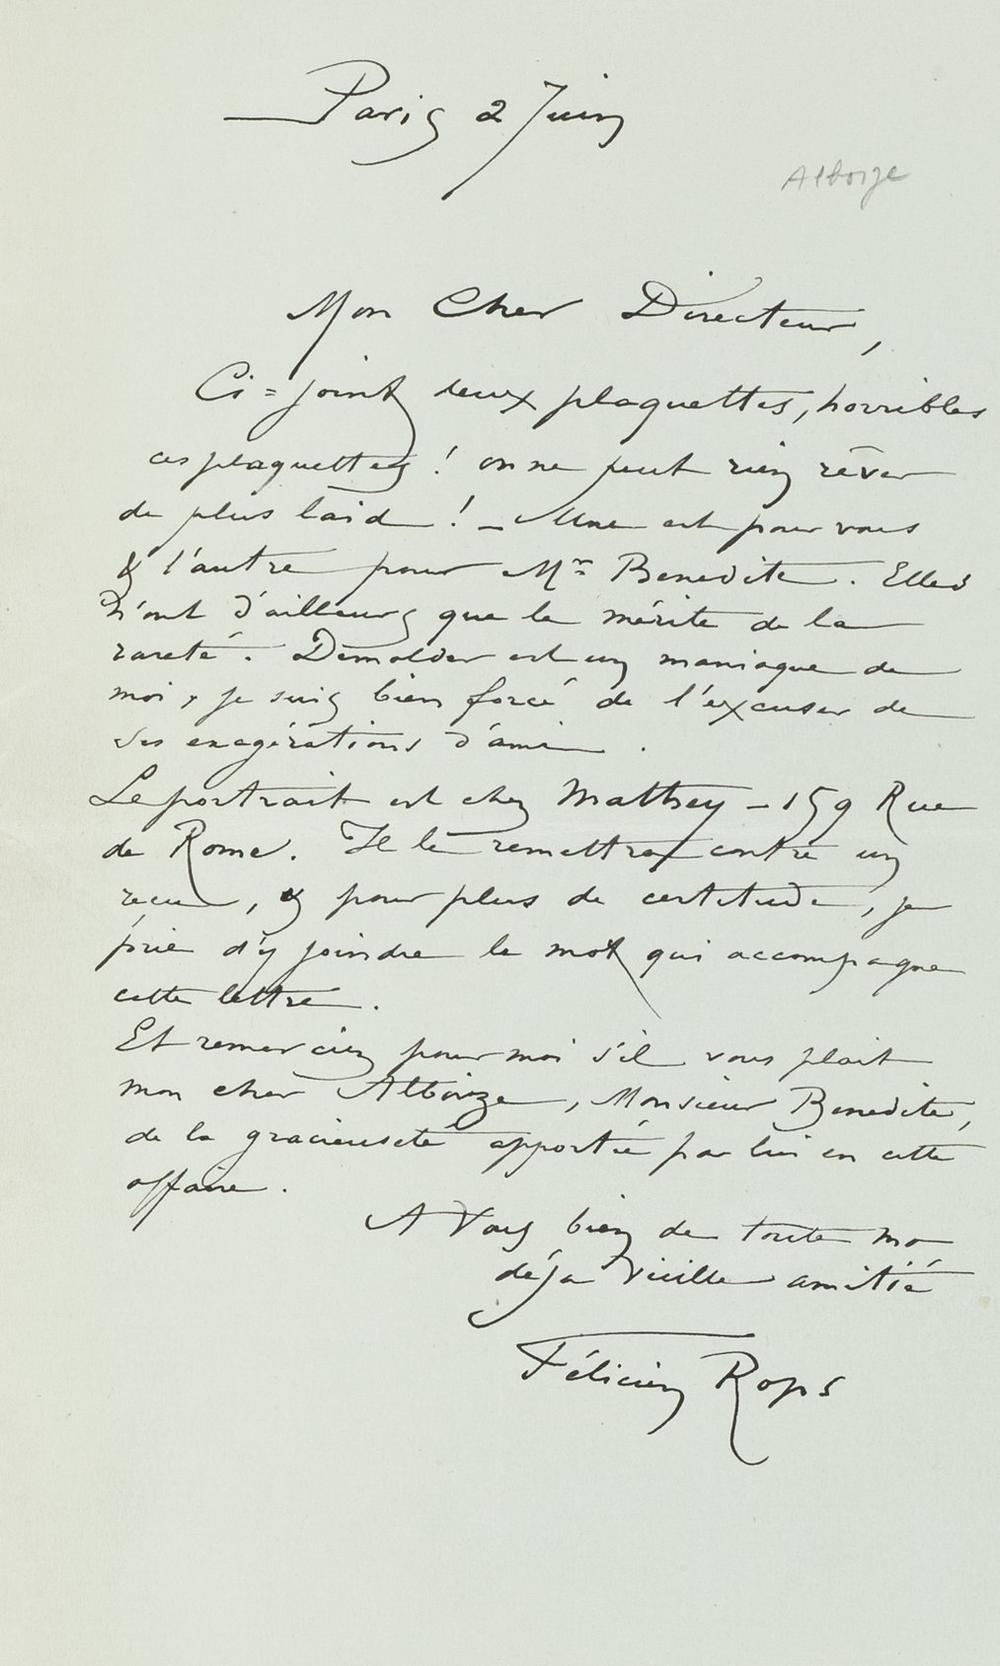 Paris 2 Juin
Alboize
Mon Cher Directeur,
Ci=joint deux plaquettes, horribles
ces plaquettes ! on ne peut rien rêver
de plus laid ! – Une est pour vous
& l'autre pour Mr Benedite. Elles
n'ont d'ailleurs que le mérite de la
rareté. Demolder est un maniaque de
moi, je suis bien forcé de l'excuser de
ses exagérations d'ami.
Le portrait est chez Mathey – 159 Rue
de Rome. Il le remettra contre un
recu, & pour plus de certitude, je
prie d'y joindre le mot qui accompagne
cette lettre.
Et remerciez pour moi s'il vous plait
mon cher Alboize, Monsieur Benedite,
de la gracieuseté apportée par lui en cette
affaire.
A Vous bien de toute ma
déja vieille amitié
Félicien Rops